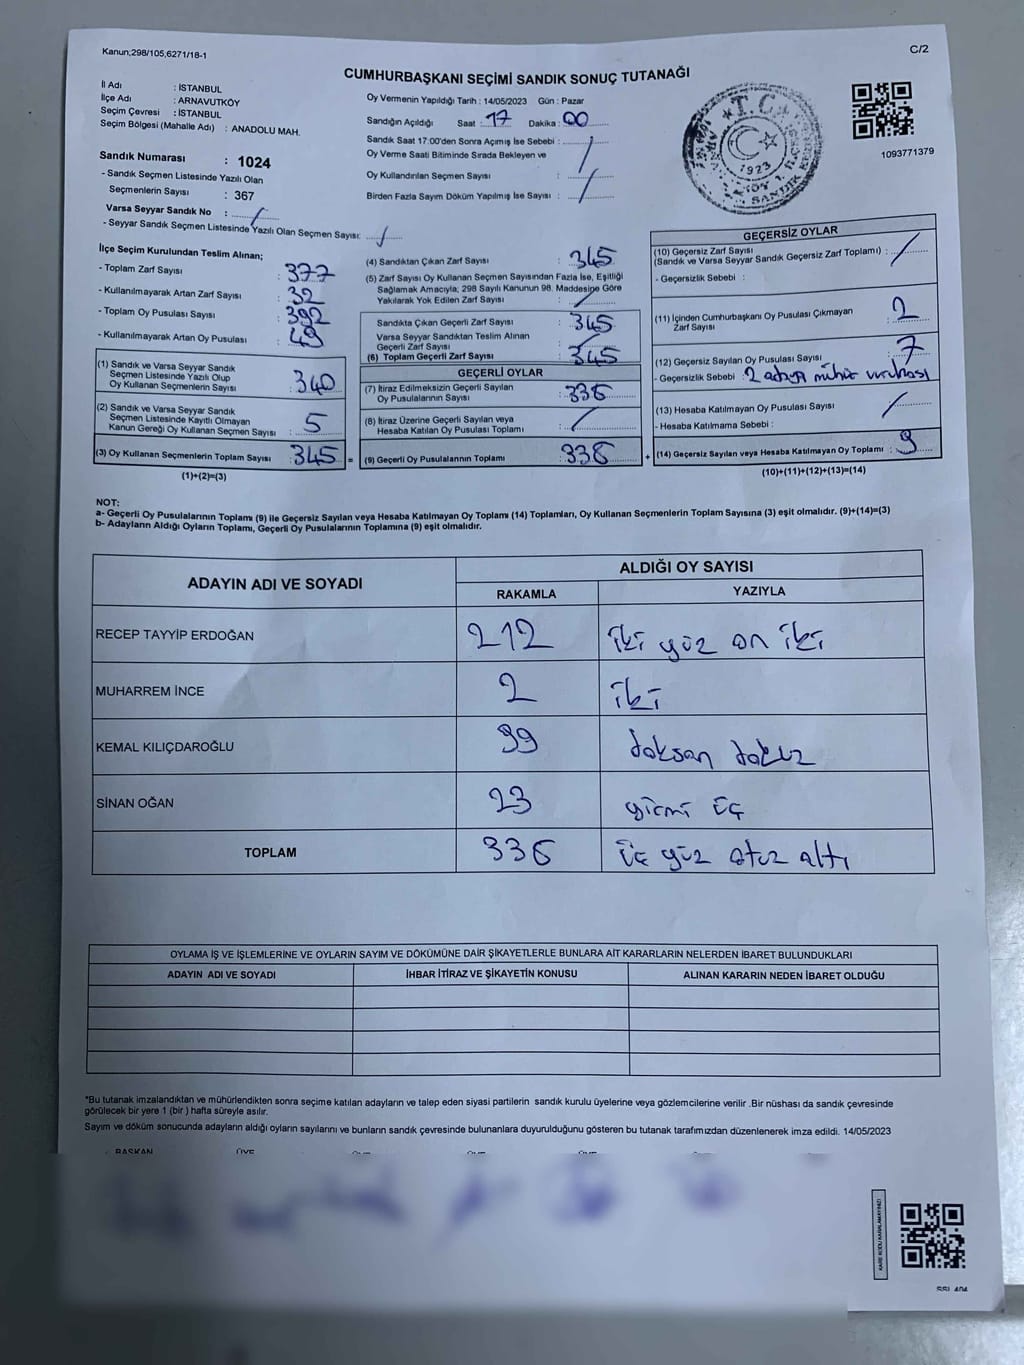 Kanun;298/105,6271/18-1
C/2
CUMHURBAŞKANI SEÇİMİ SANDIK SONUÇ TUTANAĞI
İl Adı : İSTANBUL
İlçe Adı : ARNAVUTKÖY
Seçim Çevresi : İSTANBUL
Seçim Bölgesi (Mahalle Adı) : ANADOLU MAH.
Sandık Numarası : 1024
- Sandık Seçmen Listesinde Yazılı Olan
Seçmenlerin Sayısı : 367
Varsa Seyyar Sandık No : /
- Seyyar Sandık Seçmen Listesinde Yazılı Olan Seçmen Sayısı: /
Oy Vermenin Yapıldığı Tarih : 14/05/2023 Gün : Pazar
Sandığın Açıldığı Saat : 17 Dakika : 00
Sandık Saat 17:00'den Sonra Açımış İse Sebebi : /
Oy Verme Saati Bitiminde Sırada Bekleyen ve
Oy Kullandırılan Seçmen Sayısı : /
Birden Fazla Sayım Döküm Yapılmış İse Sayısı : /
T.C.
1923
1093771379
İlçe Seçim Kurulundan Teslim Alınan;
- Toplam Zarf Sayısı : 377
- Kullanılmayarak Artan Zarf Sayısı : 32
- Toplam Oy Pusulası Sayısı : 392
- Kullanılmayarak Artan Oy Pusulası : 49
(1) Sandık ve Varsa Seyyar Sandık
Seçmen Listesinde Yazılı Olup
Oy Kullanan Seçmenlerin Sayısı : 340
(2) Sandık ve Varsa Seyyar Sandık
Seçmen Listesinde Kayıtlı Olmayan
Kanun Gereği Oy Kullanan Seçmen Sayısı : 5
(3) Oy Kullanan Seçmenlerin Toplam Sayısı : 345 =
(1)+(2)=(3)
(4) Sandıktan Çıkan Zarf Sayısı : 345
(5) Zarf Sayısı Oy Kullanan Seçmen Sayısından Fazla İse, Eşitliği
Sağlamak Amacıyla; 298 Sayılı Kanunun 98. Maddesine Göre
Yakılarak Yok Edilen Zarf Sayısı : /
Sandıkta Çıkan Geçerli Zarf Sayısı : 345
Varsa Seyyar Sandıktan Teslim Alınan
Geçerli Zarf Sayısı : /
(6) Toplam Geçerli Zarf Sayısı : 345
GEÇERLİ OYLAR
(7) İtiraz Edilmeksizin Geçerli Sayılan
Oy Pusulalarının Sayısı : 336
(8) İtiraz Üzerine Geçerli Sayılan veya
Hesaba Katılan Oy Pusulası Toplamı : /
(9) Geçerli Oy Pusulalarının Toplamı : 336 +
GEÇERSİZ OYLAR
(10) Geçersiz Zarf Sayısı
(Sandık ve Varsa Seyyar Sandık Geçersiz Zarf Toplamı) : /
- Geçersizlik Sebebi :
(11) İçinden Cumhurbaşkanı Oy Pusulası Çıkmayan
Zarf Sayısı : 2
(12) Geçersiz Sayılan Oy Pusulası Sayısı : 7
- Geçersizlik Sebebi : 2 adaya mühür vurulması
(13) Hesaba Katılmayan Oy Pusulası Sayısı : /
- Hesaba Katılmama Sebebi :
(14) Geçersiz Sayılan veya Hesaba Katılmayan Oy Toplamı : 9
(10)+(11)+(12)+(13)=(14)
NOT:
a- Geçerli Oy Pusulalarının Toplamı (9) ile Geçersiz Sayılan veya Hesaba Katılmayan Oy Toplamı (14) Toplamları, Oy Kullanan Seçmenlerin Toplam Sayısına (3) eşit olmalıdır. (9)+(14)=(3)
b- Adayların Aldığı Oyların Toplamı, Geçerli Oy Pusulalarının Toplamına (9) eşit olmalıdır.
ADAYIN ADI VE SOYADI ALDIĞI OY SAYISI
RAKAMLA YAZIYLA
RECEP TAYYİP ERDOĞAN 212 iki yüz on iki
MUHARREM İNCE 2 iki
KEMAL KILIÇDAROĞLU 99 doksan dokuz
SİNAN OĞAN 23 yirmi üç
TOPLAM 336 üç yüz otuz altı
OYLAMA İŞ VE İŞLEMLERİNE VE OYLARIN SAYIM VE DÖKÜMÜNE DAİR ŞİKAYETLERLE BUNLARA AİT KARARLARIN NELERDEN İBARET BULUNDUKLARI
ADAYIN ADI VE SOYADI İHBAR İTİRAZ VE ŞİKAYETİN KONUSU ALINAN KARARIN NEDEN İBARET OLDUĞU
*Bu tutanak imzalandıktan ve mühürlendikten sonra seçime katılan adayların ve talep eden siyasi partilerin sandık kurulu üyelerine veya gözlemcilerine verilir .Bir nüshası da sandık çevresinde
görülecek bir yere 1 (bir ) hafta süreyle asılır.
Sayım ve döküm sonucunda adayların aldığı oyların sayılarını ve bunların sandık çevresinde bulunanlara duyurulduğunu gösteren bu tutanak tarafımızdan düzenlenerek imza edildi. 14/05/2023
BAŞKAN ÜYE
KARE KODU KARALAMAYINIZ!